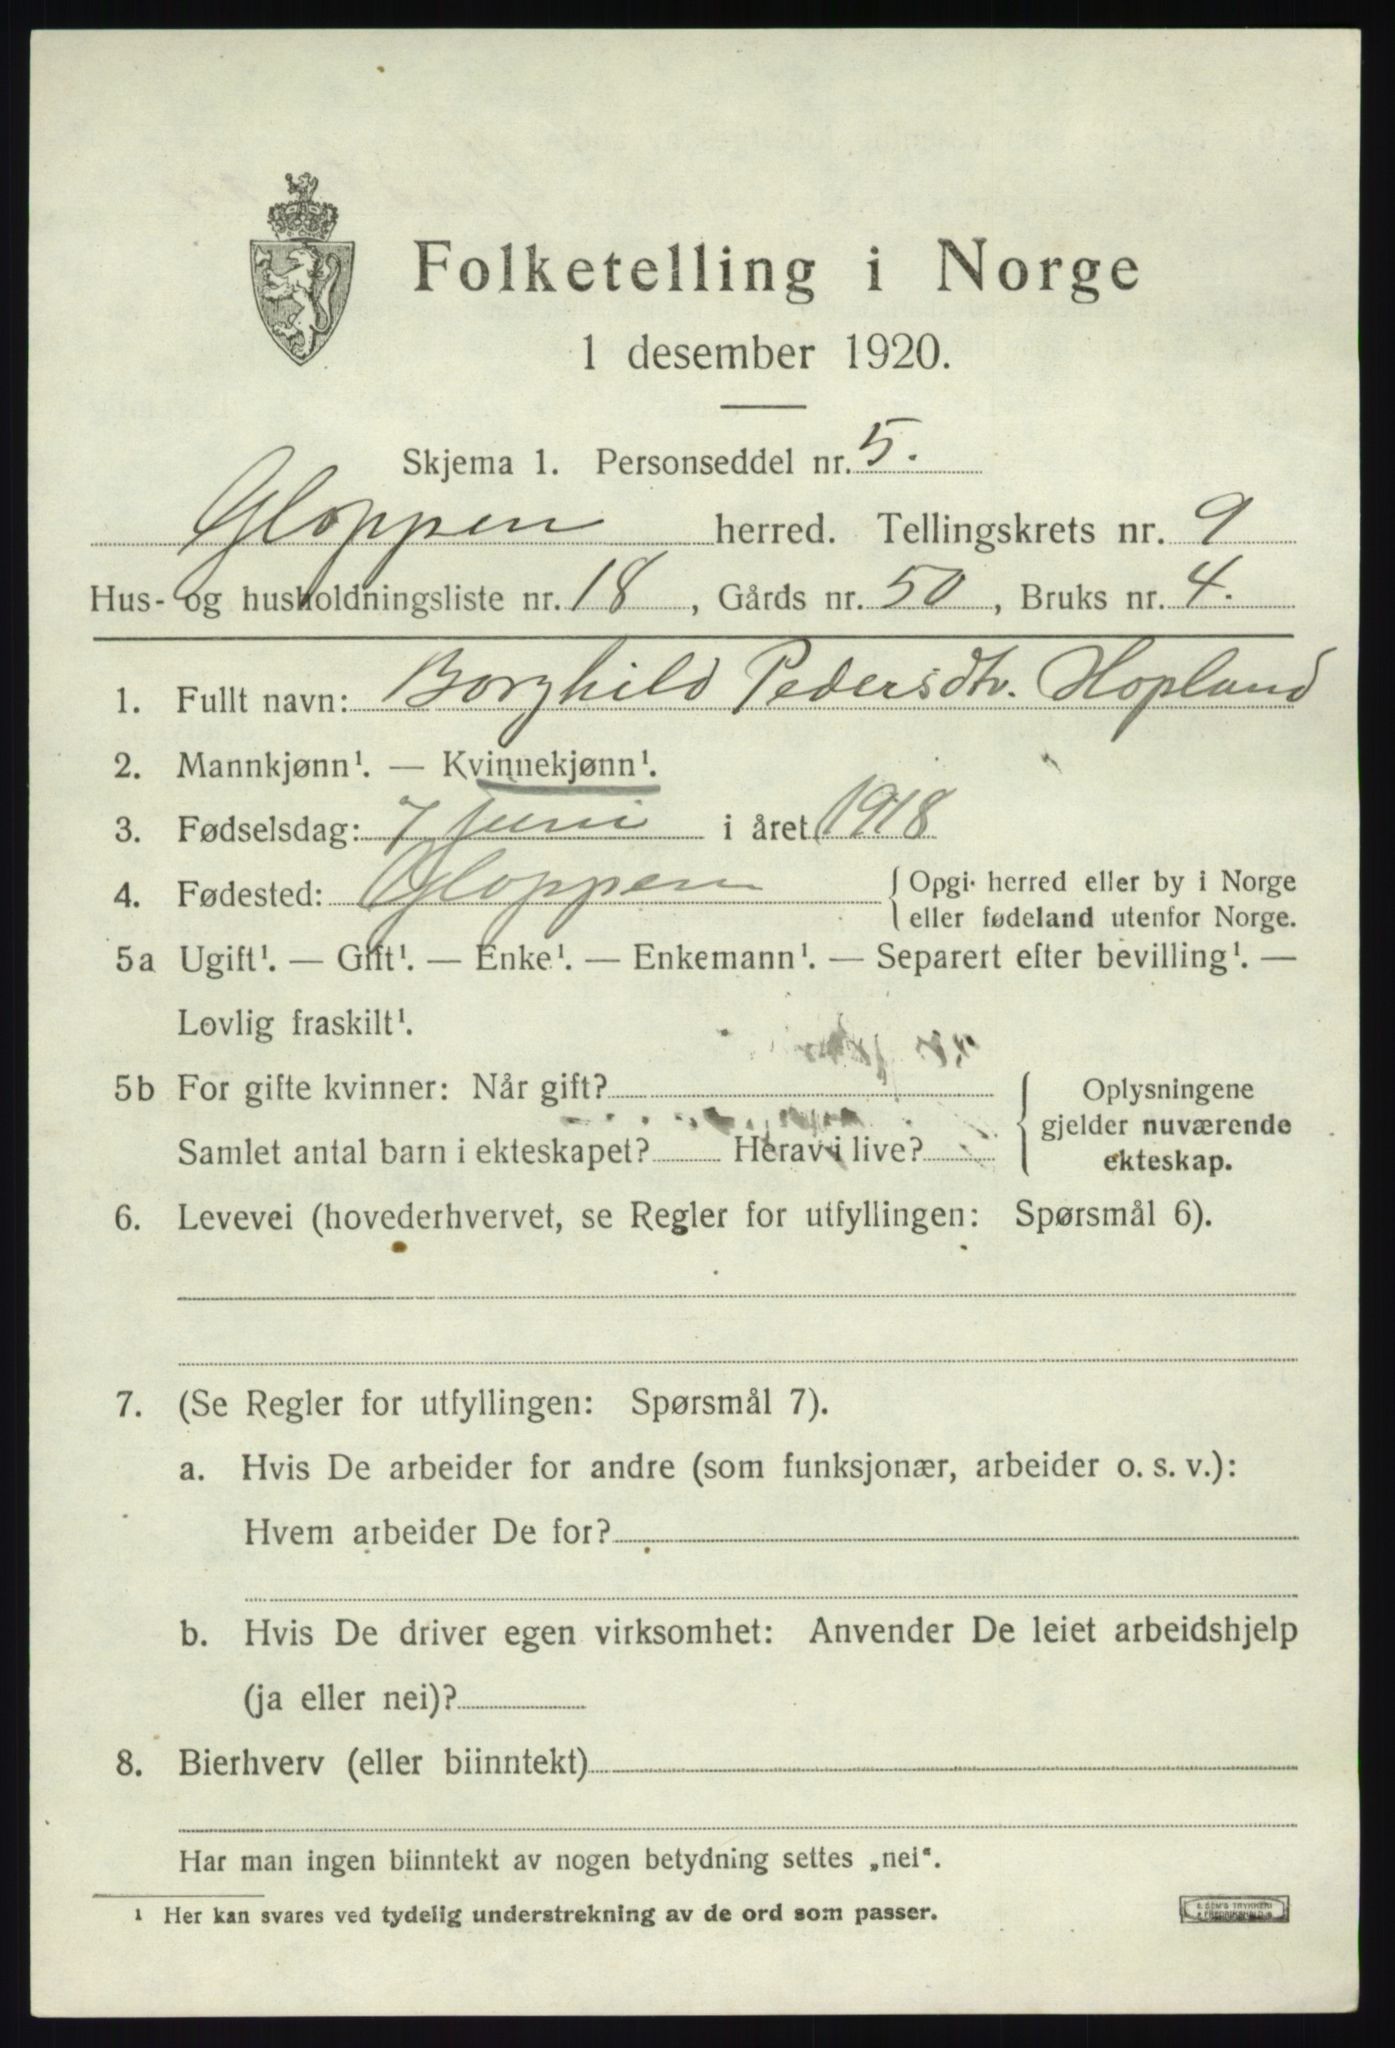 Folketelling i Norge
1 desember 1920.
Skjema 1. Personseddel nr. 5.
Gloppen herred. Tellingskrets nr. 9
Hus- og husholdningsliste nr. 18, Gårds nr. 50, Bruks nr. 4.
1. Fullt navn: Borghild Pedersdtr. Hopland
2. Mannkjønn¹. — Kvinnekjønn¹.
3. Fødselsdag: 7 Juni i året 1918
4. Fødested: Gloppen { Opgi herred eller by i Norge
eller fødeland utenfor Norge.
5a Ugift¹. — Gift¹. — Enke¹. — Enkemann¹. — Separert efter bevilling¹. —
Lovlig fraskilt¹.
5b For gifte kvinner: Når gift? { Oplysningene
gjelder nuværende
Samlet antal barn i ekteskapet? Herav i live? ekteskap.
6. Levevei (hovederhvervet, se Regler for utfyllingen: Spørsmål 6).
7. (Se Regler for utfyllingen: Spørsmål 7).
a. Hvis De arbeider for andre (som funksjonær, arbeider o. s. v.):
Hvem arbeider De for?
b. Hvis De driver egen virksomhet: Anvender De leiet arbeidshjelp
(ja eller nei)?
8. Bierhverv (eller biinntekt)
Har man ingen biinntekt av nogen betydning settes „nei“.
¹ Her kan svares ved tydelig understrekning av de ord som passer.